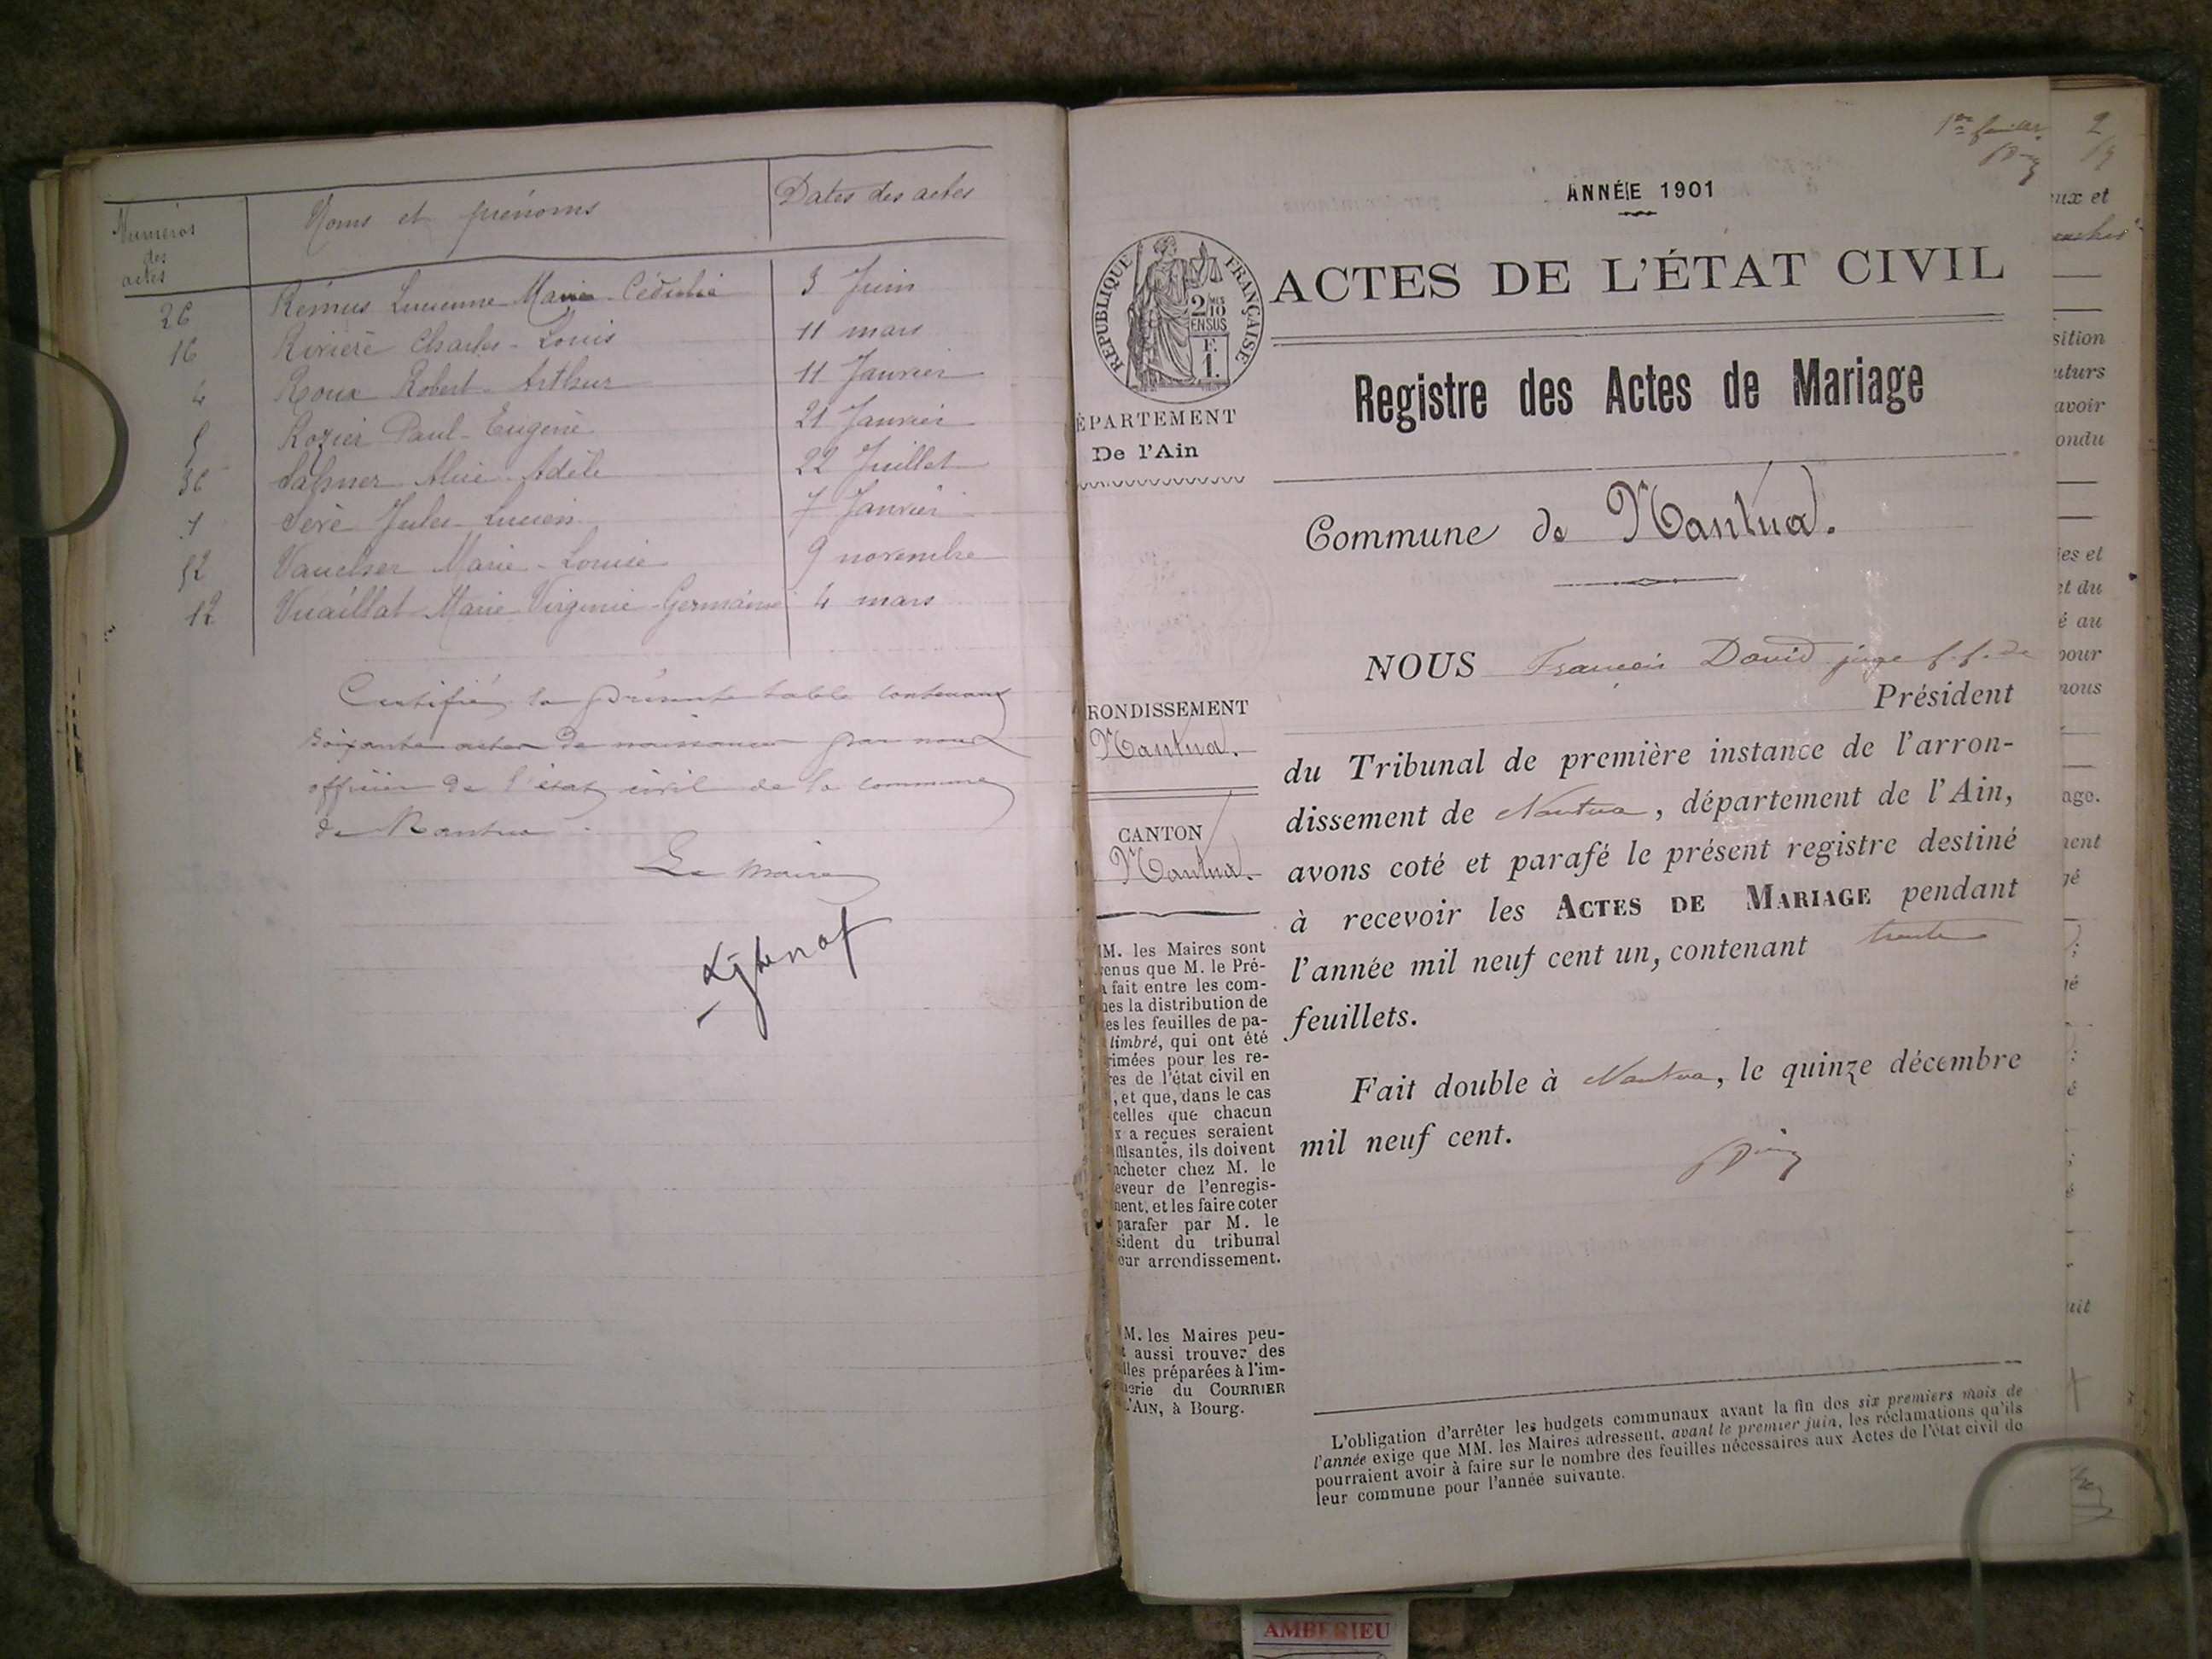 Numéros des actes
Noms et prénoms
Dates des actes
26 Rémus Lucienne Marie 3 Juin
16 Rivière Charles-Louis 11 mars
4 Roux Robert-Arthur 11 Janvier
5 Rozier Paul-Eugène 21 Janvier
36 Alice-Adèle 22 Juillet
1 Seve Jules-Lucien 7 Janvier
52 Vaucher Marie-Louise 9 novembre
12 Vuaillat Marie-Virginie-Germaine 4 mars
Certifié la présente table contenant
soixante actes de naissances par nous
officier de l'état civil de la commune
de Nantua.
Le Maire
1er feuillet
ANNÉE 1901
RÉPUBLIQUE FRANÇAISE
2/10
EN SUS
F.
1.
ACTES DE L'ÉTAT CIVIL
Registre des Actes de Mariage
ÉPARTEMENT
De l'Ain
Commune de Nantua.
RONDISSEMENT
Nantua.
CANTON
Nantua.
NOUS François David juge f.f. de
Président
du Tribunal de première instance de l'arron-
dissement de Nantua, département de l'Ain,
avons coté et parafé le présent registre destiné
à recevoir les ACTES DE MARIAGE pendant
l'année mil neuf cent un, contenant trente
feuillets.
Fait double à Nantua, le quinze décembre
mil neuf cent.
MM. les Maires sont
enus que M. le Pré-
a fait entre les com-
nes la distribution de
es les feuilles de pa-
timbré, qui ont été
rimées pour les re-
res de l'état civil en
, et que, dans le cas
celles que chacun
x a reçues seraient
ffisantes, ils doivent
acheter chez M. le
eveur de l'enregis-
ment, et les faire coter
parafer par M. le
sident du tribunal
eur arrondissement.
M. les Maires peu-
t aussi trouver des
lles préparées à l'im-
erie du COURRIER
L'AIN, à Bourg.
L'obligation d'arrêter les budgets communaux avant la fin des six premiers mois de
l'année exige que MM. les Maires adressent, avant le premier juin, les réclamations qu'ils
pourraient avoir à faire sur le nombre des feuilles nécessaires aux Actes de l'état civil de
leur commune pour l'année suivante.
2
ux et
sition
uturs
avoir
ondu
ies et
et du
é au
pour
nous
age.
nent
gé
uit
AMBERIEU